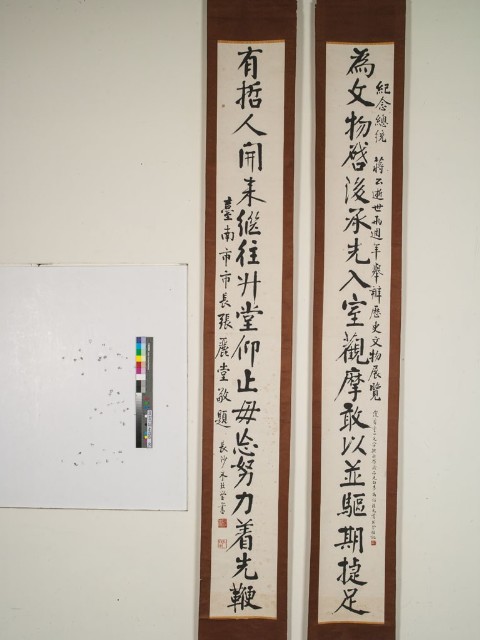 為文物啓後承先入室觀摩敢以並驅期捷足
紀念總統 蔣公逝世兩週年舉辦歷史文物展覽
有哲人開來繼往升堂仰止毋忘努力着先鞭
臺南市市長張麗堂敬題